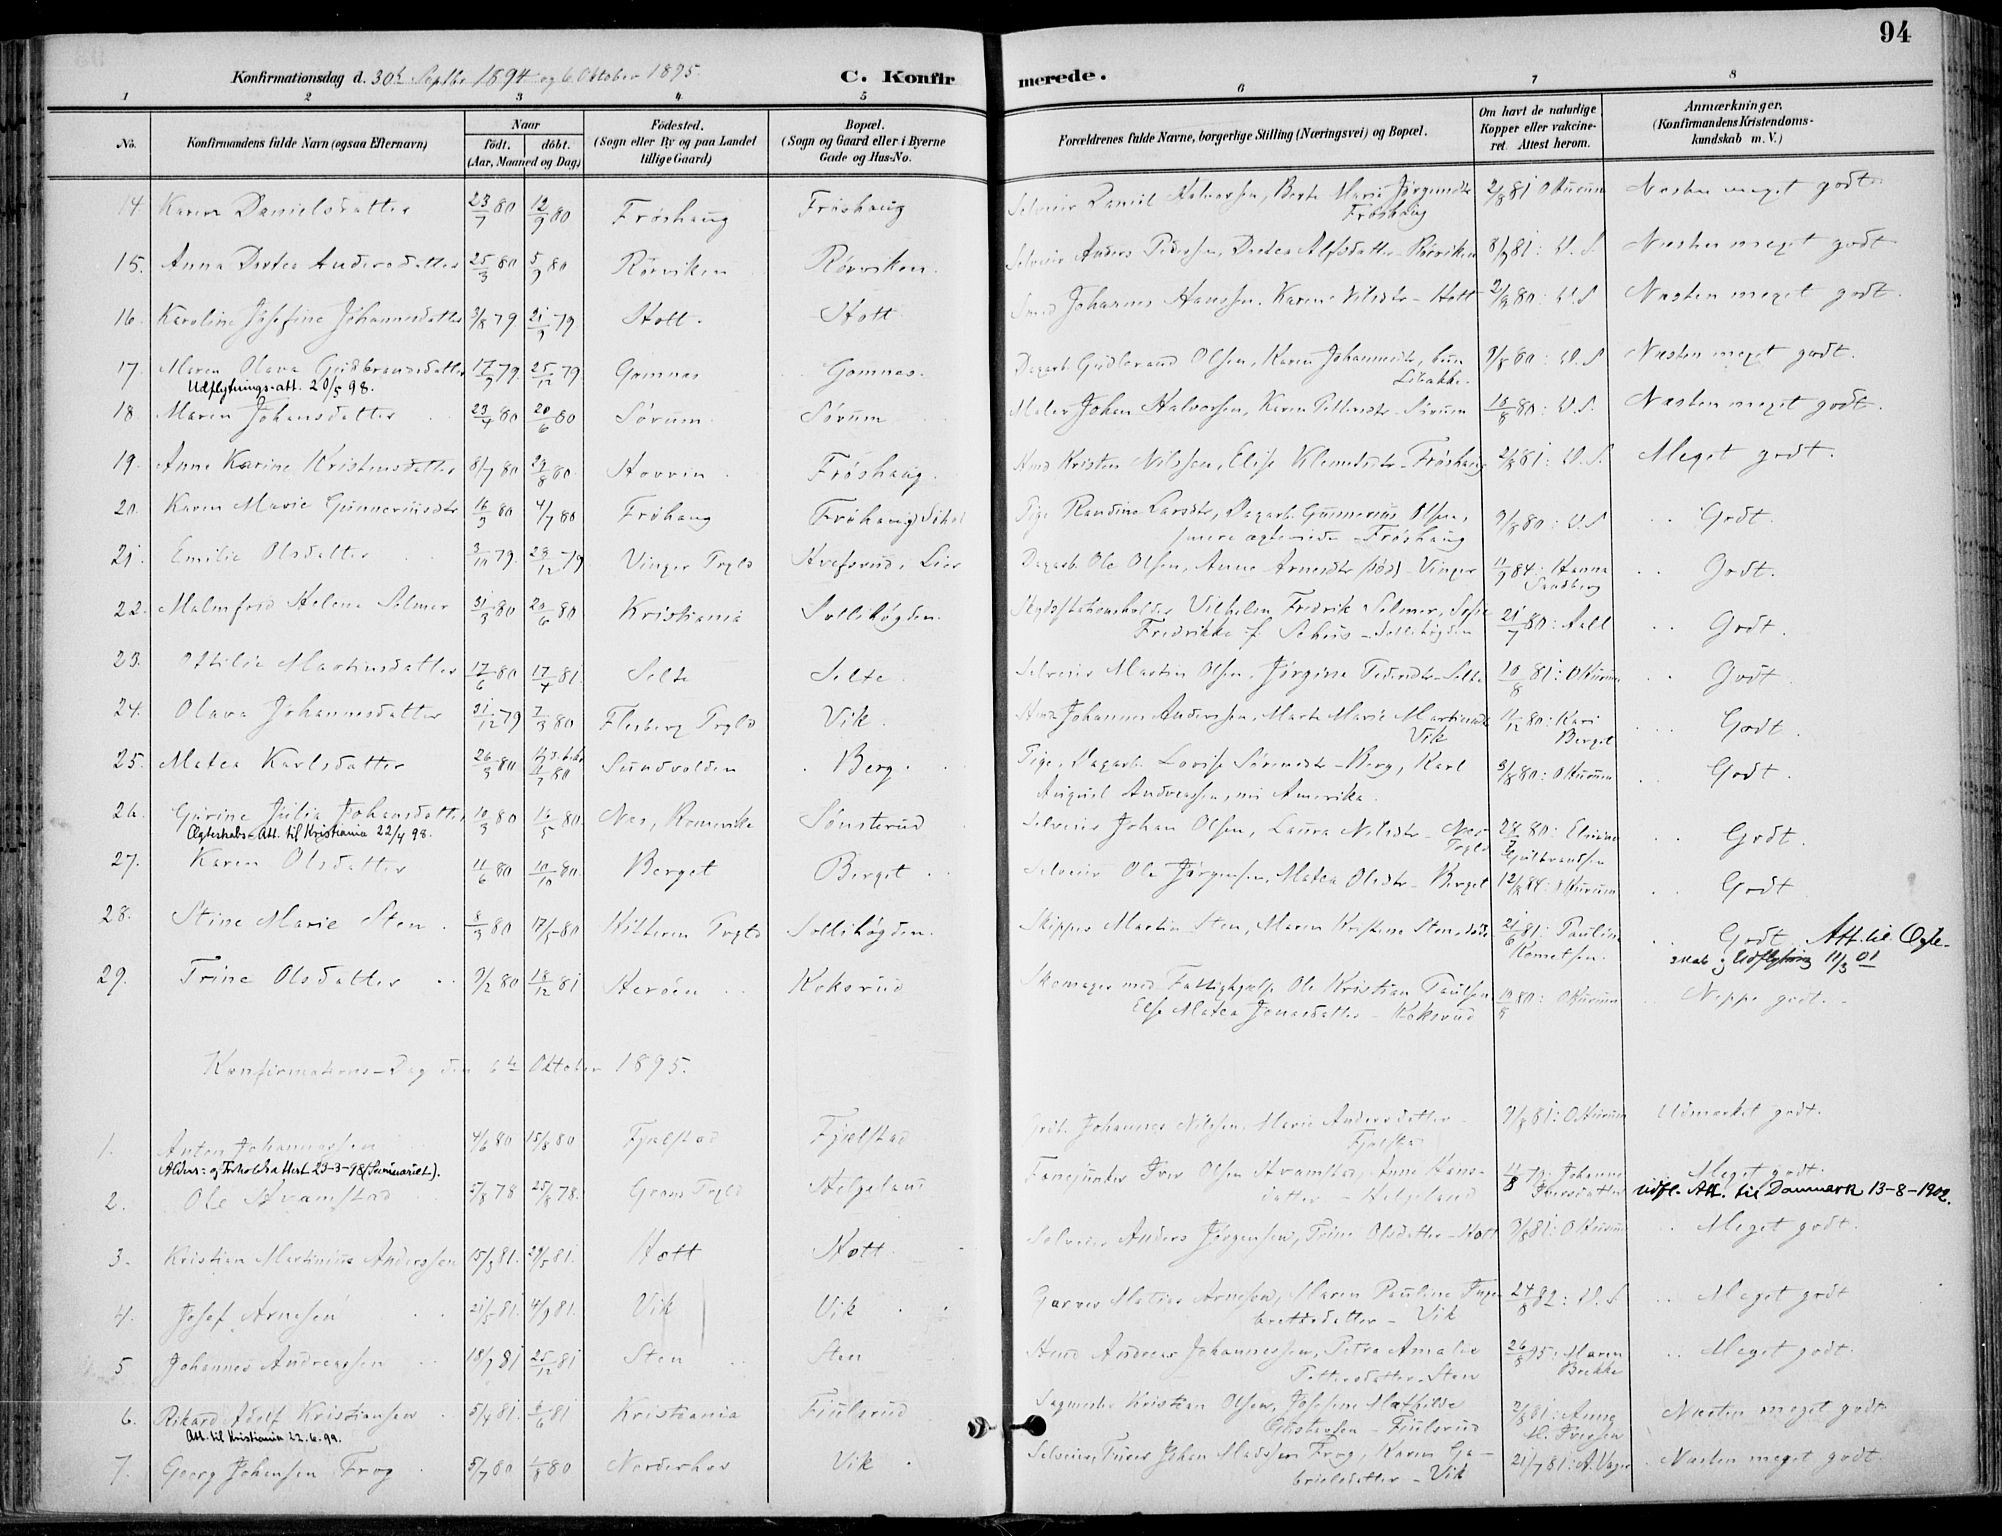 94
Konfirmationsdag d. 30te Septbr 1894 og 6. Oktober 1895.
C. Konfirmerede.
1 2 3 4 5 6 7 8
No.
Konfirmandens fulde Navn (ogsaa Efternavn)
Naar
født. døbt.
(Aar, Maaned og Dag)
Fødested.
(Sogn eller By og paa Landet
tillige Gaard)
Bopæl.
(Sogn og Gaard eller i Byerne
Gade og Hus-No.
Forældrenes fulde Navne, borgerlige Stilling (Næringsvei) og Bopæl.
Om havt de naturlige
Kopper eller vakcine-
ret. Attest herom.
Anmærkninger.
(Konfirmandens Kristendoms-
kundskab m. V.)
14. Karen Danielsdatter 23/7 80 12/9 80 Frøshaug Frøshaug Selveier Daniel Halvorsen, Berte Marie Jørgensdtr Frøshaug 2/8 81 Næsten meget godt.
15. Anna Dortea Andersdatter 25/3 80 5/9 80 Rørviken Rørviken. Selveier Anders Pedersen, Dortea Alfsdatter Rørviken 8/9 81: Næsten meget godt
16. Karoline Josefine Johannesdatter 3/8 79 21/9 79 Stott. Stott Smed Johannes Hanssen, Karen Nilsdtr - Stott 80: Næsten meget godt.
17. Maren Olava Gudbrandsdatter 17/9 79. 25/12 79 Gomnes Gomnes. Dagarb. Gudbrand Olsen, Karen Johannesdtr, 9/8 80: Næsten meget godt.
Udflytnings-att. 20/5 98.
18. Maren Johansdatter 23/4 80 20/6 80 Sørum. Sørum Maler Johan Halvorsen, Karen Pettersdtr Sørum 18/8 80: Næsten meget godt.
19. Anne Karine Kristensdatter 8/7 80 29/8 80. Hovrin Frøshaug. Kristen Nilssen, Elise Klemetsdtr - Frøshaug 2/8 81: Meget godt.
20. Karen Marie Gunneriusdtr 16/3 80 4/7 80 Frøhaug Frøhaug Pige Randine Larsdtr, Dagarb. Gunnerius Olsen, Frøshaug 9/8 80: Godt.
21. Emilie Olsdatter 3/10 79. 29/12 79 Vinger Prgld i Lier Dagarb. Ole Olsen, Anne Arnesdtr (død) - Vinger 11/9 84: Hanna Sandberg Godt.
22. Malmfrid Helena Selmer 31/3 80 20/6 80 Kristiania Sollihøgden. Skydsstationsholder Vilhelm Fredrik Selmer, Sofie Fredrikke f. - Sollihøgden 21/7 80: Aall Godt.
23. Ottilie Martinsdatter 17/6 80 17/4 81. Selte Selte. Selveier Martin Olsen, Jørgine Pedersdtr - Selte 10/8 81: Godt
24. Olava Johannesdatter 31/12 79 7/3 80 Flesberg Prgld Vik. Johannes Anderssen, Marte Marie Martinsdtr Vik 11/12 80: Kari Berget Godt.
25. Matea Karlsdatter 26/3 80 Sundvolden Berg. Pige, Dagarb. Lovise Sørensdtr - Berg, Karl August Andreassen, nu Amerika. 3/8 80: Godt.
26. Gurine Julia Johansdatter 10/3 80 16/5 80. Nes, Romerike Sønsterud Selveier Johan Olsen, Laura Nilsdtr - Nes Prgld 28/7 80: Gulbrandsen Godt.
Ægteskabs-Att. til Kristiania 22/4 98.
27. Karen Olsdatter 11/6 80 10/10 80. Berget Berget. Selveier Ole Jørgensen, Matea Olsdtr - Berget 84: Godt.
28. Stine Marie Sten 8/3 80 17/5 80 Hitteren Prgld Sollihøgden. Skipper Martin Sten, Maren Kristine Sten, 21/6 81: Pauline Godt. Att. til Ægte-
skab og Udflytning 11/3 01
29. Trine Olsdatter 9/2 80 18/12 81 Herøen Koksrud Skomager med Fattighjælp Ole Kristian Paulsen Else Matea Jonasdatter - Koksrud 80: Neppe godt.
Konfirmations-Dag den 6te Oktober 1895.
1. Anton Johannessen 4/6 80 15/8 80 Fjælstad Fjælstad Johannes Nilsen, Marie Andersdatter Fjælstad 81: Udmærket godt.
Alders- og Forholdsattest 23-3-98 (Seminariet).
2. Ole Kvamstad 5/8 78 25/8 78. Grans Prgld Helgeland Iver Olsen Kvamstad, Anne Hansdatter - Helgeland 79: Johanne Iversdatter Meget godt.
Udfl. Att. til Danmark 13-8-1902.
3. Kristian Martinius Anderssen 15/3 81. 29/5 81. Stott Stott. Selveier Anders Jørgensen, Trine Olsdatter - Stott 81: Meget godt.
4. Josef Arnesen 21/5 81. 4/9 81. Vik Vik Garver Matias Arnesen, Maren Pauline Ingebretsdatter - Vik 24/8 82: Meget godt
5 Johannes Andreassen 18/9 81 25/12 81 Sten Sten Andreas Johannessen, Petra Amalie Pettersdatter Sten 26/8 95: Maren Brekke Meget godt.
6. Rikard Adolf Kristiansen 5/4 81. 6/6 81 Kristiania Fiulsrud Sagmester Kristian Olsen, Josefine Mathilde - Fiulsrud 81: Anne M. Iversen Næsten meget godt
Att. til Kristiania 22.6.99.
7. Georg Johansen Frog 5/7 80 1/8 80 Norderhov Vik Johan Madssen Frog, Karen Gabrielsdatter - Vik 21/7 81: Næsten meget godt.